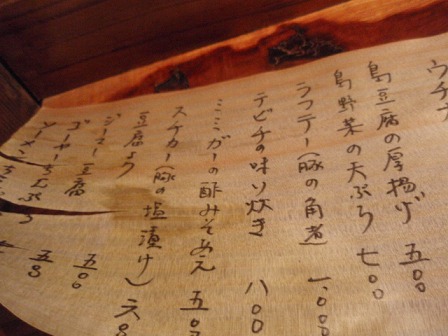 ウチナ
島豆腐の厚揚げ 五〇〇
島野菜の天ぷら 七〇〇
ラフテー(豚の角煮) 一、〇〇〇
テビチの味ソ炊き 八〇〇
ミミガーの酢みそあえ 五〇〇
スーチカー(豚の塩漬け) 六〇
豆腐よう
ジーマミー豆腐 五〇
ゴーヤーちゃんぷる 五〇
ソーメンちゃんぷる